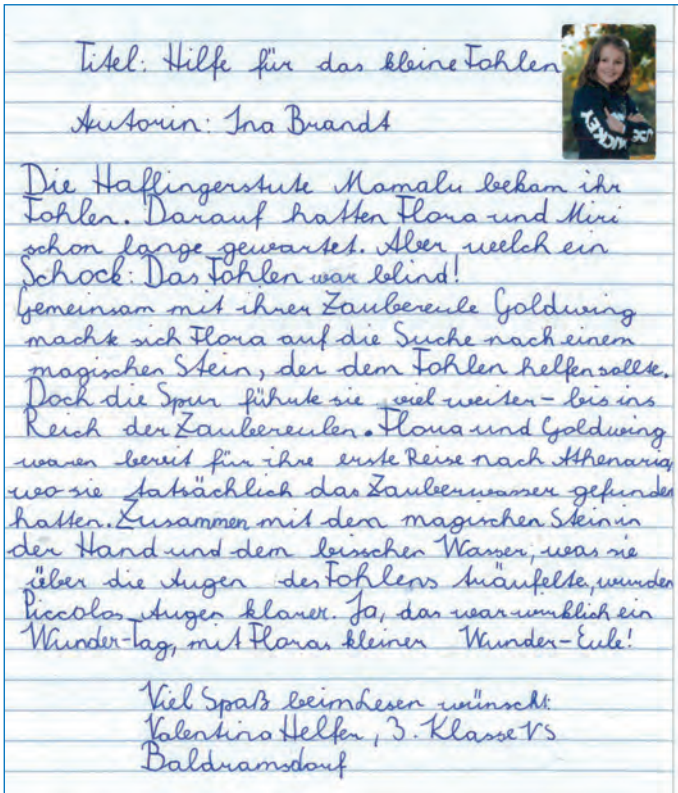 Titel: Hilfe für das kleine Fohlen
Autorin: Ina Brandt
Die Haflingerstute Mamalu bekam ihr
Fohlen. Darauf hatten Flora und Miri
schon lange gewartet. Aber welch ein
Schock: Das Fohlen war blind!
Gemeinsam mit ihrer Zaubereule Goldwing
machte sich Flora auf die Suche nach einem
magischen Stein, der dem Fohlen helfen sollte.
Doch die Spur führte sie viel weiter – bis ins
Reich der Zaubereulen. Flora und Goldwing
waren bereit für ihre erste Reise nach Athenaria,
wo sie tatsächlich das Zauberwasser gefunden
hatten. Zusammen mit dem magischen Stein in
der Hand und dem bisschen Wasser, was sie
über die Augen des Fohlens träufelte, wurden
Piccolos Augen klarer. Ja, das war wirklich ein
Wunder-Tag, mit Floras kleiner Wunder-Eule!
Viel Spaß beim Lesen wünscht:
Valentina Helfer, 3. Klasse VS
Baldramsdorf